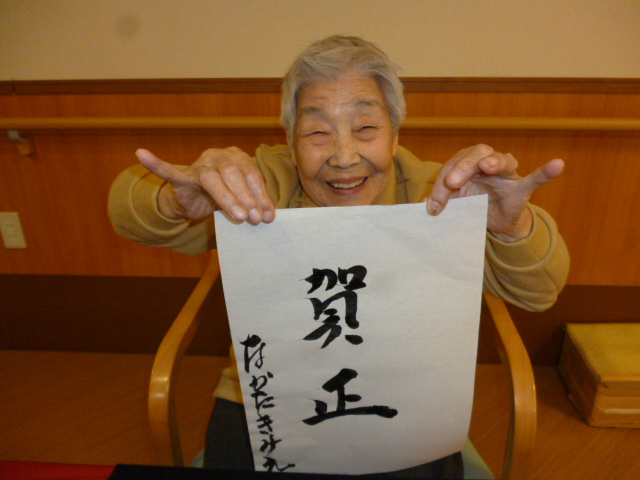 賀正
なかたきみえ